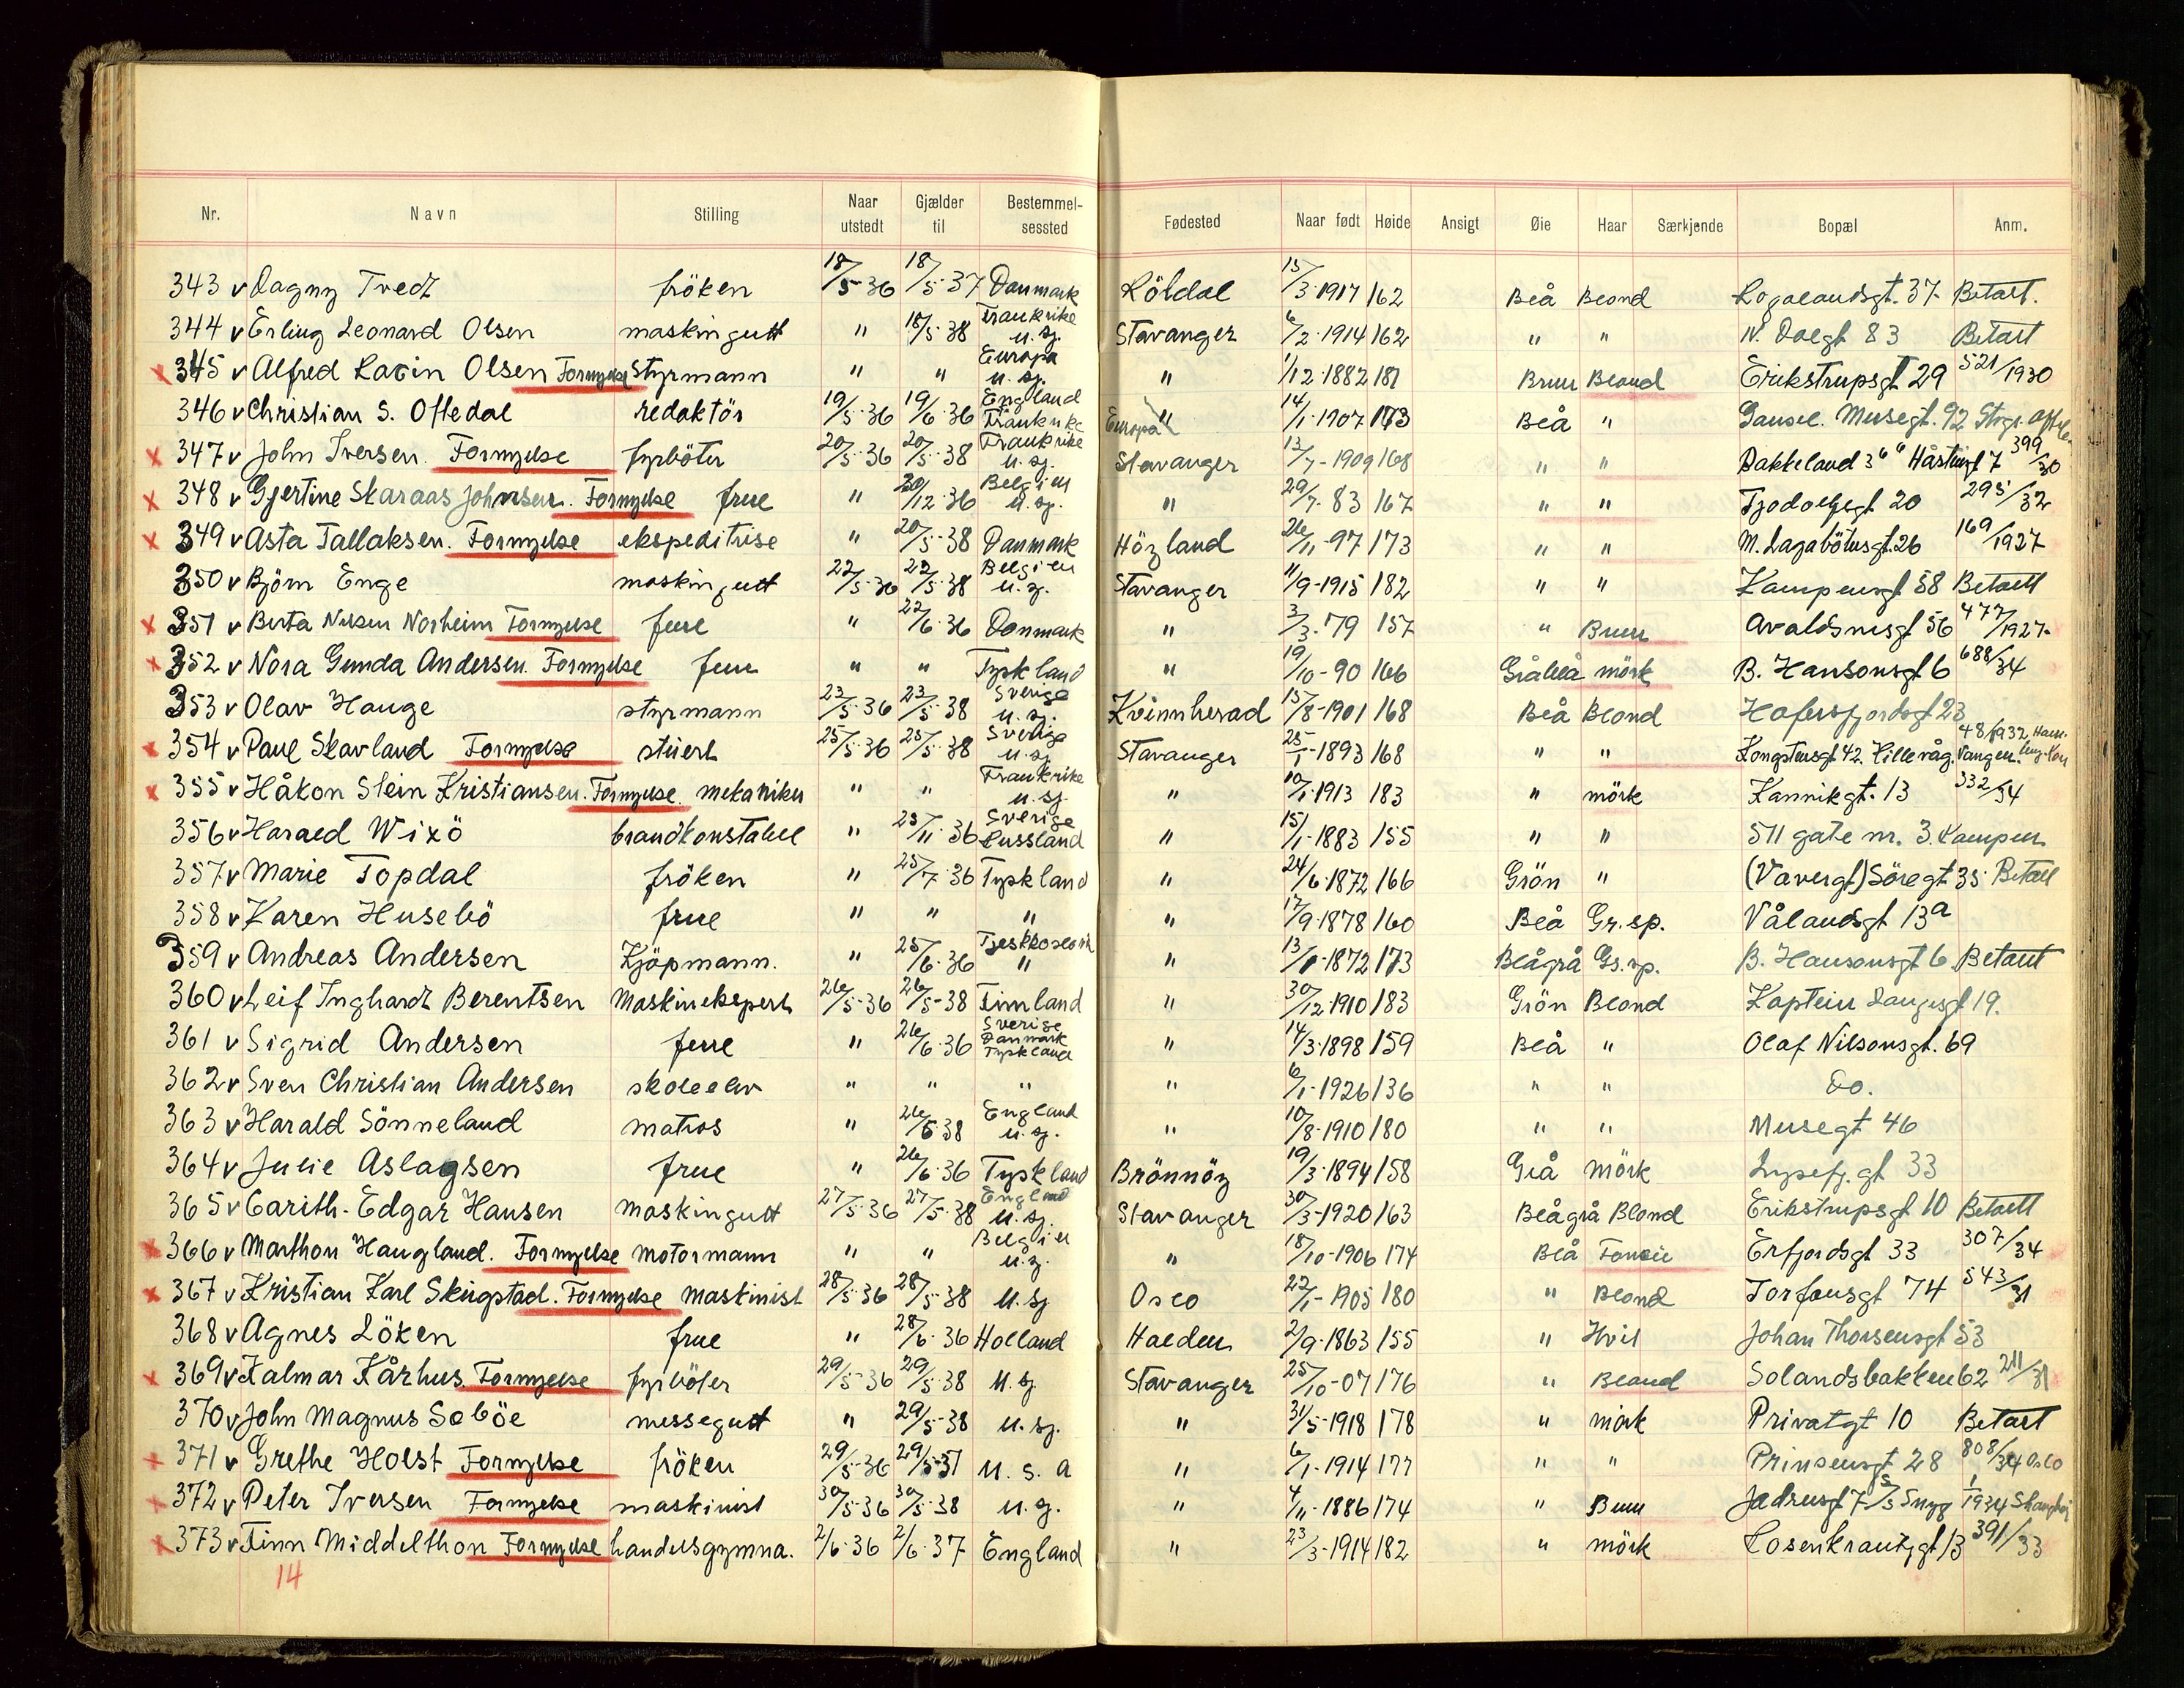 Nr. Navn Stilling Naar utstedt Gjælder til Bestemmelsessted Fødested Naar født Høide Ansigt Øie Haar Særkjende Bopæl Anm.
343 v Dagny Tvedt fröken 18/5-36 18/5-37 Danmark Röldal 15/3-1917 162 Blå Blond Rogalandsgt. 37 Betalt.
344 v Erling Leonard Olsen maskingutt " 18/5-38 Frankrike u. sj. Stavanger 6/2-1914 162 " " N. Dalgt 83 Betalt
x 345 v Alfred Olsen Fornyelse styrmann " " Europa u. sj. " 1/12-1882 181 Brun Blond Erikstrupsgt 29 521/1930
346 v Christian S. Oftedal redaktör 19/5-36 19/6-36 England Frankrike Europa " 14/1-1907 173 Blå " Gausel. Musegt. 92
x 347 v John Iversen. Fornyelse fyrböter 20/5-36 20/5-38 Frankrike u. sj. Stavanger 13/7-1909 168 " " Bakkeland 36 399/30
x 348 v Gjertine Skaraas Johnsen. Fornyelse frue " 20/12-36 Belgien u. sj. " 29/7-83 167 " " Tjodolfsgt 20 295/32
x 349 v Asta Tallaksen. Fornyelse ekspeditrise " 20/5-38 Danmark Högland 26/11-97 173 " " M. Lagabötersgt. 26 169/1927
350 v Björn Enge maskingutt 22/5-36 22/5-38 Belgien u. sj. Stavanger 11/9-1915 182 " " Kampensgt 58 Betalt
x 351 v Berta Nilsen Norheim Fornyelse frue " 22/6-36 Danmark " 3/3-79 157 " Brun Avaldsnesgt 56 477/1927
x 352 v Nora Gunda Andersen. Fornyelse frue " " Tyskland " 19/10-90 166 Gråblå mörk B. Hansonsgt 6 688/34
353 v Olav Hauge styrmann 23/5-36 23/5-38 Sverige u. sj. Kvinnherad 15/8-1901 168 Blå Blond Hafersfjordsgt 23
x 354 v Paul Skavland Fornyelse stuert 25/5-36 25/5-38 Sverige u. sj. Stavanger 25/1-1893 168 " " Kongstensgt 42. Hillevåg. 48/1932
x 355 v Håkon Stein Kristiansen. Fornyelse mekaniker " " Frankrike u. sj. " 10/1-1913 183 " mörk Kannikgt. 13 332/34
356 v Harald Wixö brandkonstabel " 25/11-36 Sverige Russland " 15/1-1883 155 " " 511 gate nr. 3. Kampen
357 v Marie Topdal fröken " 25/7-36 Tyskland " 24/6-1872 166 Grön " (Vavergt) Söregt 35 Betalt
358 v Karen Husebö frue " " " " 17/9-1878 160 Blå Gr. sp. Vålandsgt 13a
359 v Andreas Andersen Kjöpmann. " 25/6-36 " " 13/1-1872 173 Blågrå Gr. sp. B. Hansonsgt 6 Betalt
360 v Leif Inghardt Berentsen Maskinekspert 26/5-36 26/5-38 Finnland " 30/12-1910 183 Grön Blond Kaptein Langesgt 19.
361 v Sigrid Andersen frue " 26/6-36 Sverige Danmark Tyskland " 14/3-1898 159 Blå " Olaf Nilsonsgt. 69
362 v Sven Christian Andersen skoleelev " " " " 6/1-1926 136 " " Do.
363 v Harald Sönneland matros " 26/5-38 England u. sj. " 10/8-1910 180 " " Musegt 46
364 v Julie Aslagsen frue " 26/6-36 Tyskland Brönnöy 19/3-1894 158 Grå Mörk Lysefj. gt 33
365 v Carith-Edgar Hansen maskingutt 27/5-36 27/5-38 England u. sj. Stavanger 30/3-1920 163 Blågrå Blond Erikstrupsgt 10 Betalt
x 366 v Marthon Haugland. Fornyelse motormann " " Belgien u. sj. " 18/10-1906 174 Blå Erfjordsgt 33 307/34
x 367 v Kristian Karl Skingstad. Fornyelse Maskinist 28/5-36 28/5-38 u. sj Oslo 22/1-1905 180 " Blond Torfæusgt 74 543/31
368 v Agnes Löken frue " 28/6-36 Holland Halden 2/9-1863 155 " Hvit Johan Thorsensgt 53
x 369 v Kalmar Kårhus. Fornyelse fyrböter 29/5-36 29/5-38 u. sj. Stavanger 25/10-07 176 " Blond Solandsbakken 62 211/31
370 v John Magnus Soböe messegutt " 29/5-38 u. sj. " 31/5-1918 178 " mörk Privatgt 10 Betalt
x 371 v Grethe Holst Fornyelse fröken 29/5-36 29/5-37 U. S. A " 6/1-1914 177 " " Prinsensgt 28 808/34 Oslo
x 372 v Peter Iversen Fornyelse maskinist 30/5-36 30/5-38 u. sj. " 4/11-1886 174 " Brun Jadrusgt 7 1/1934 Shanghai
x 373 v Finn Middelthon Fornyelse handelsgymna. 2/6-36 2/6-37 England " 23/3-1914 182 " mörk Rosenkrantzgt 13 391/33
14